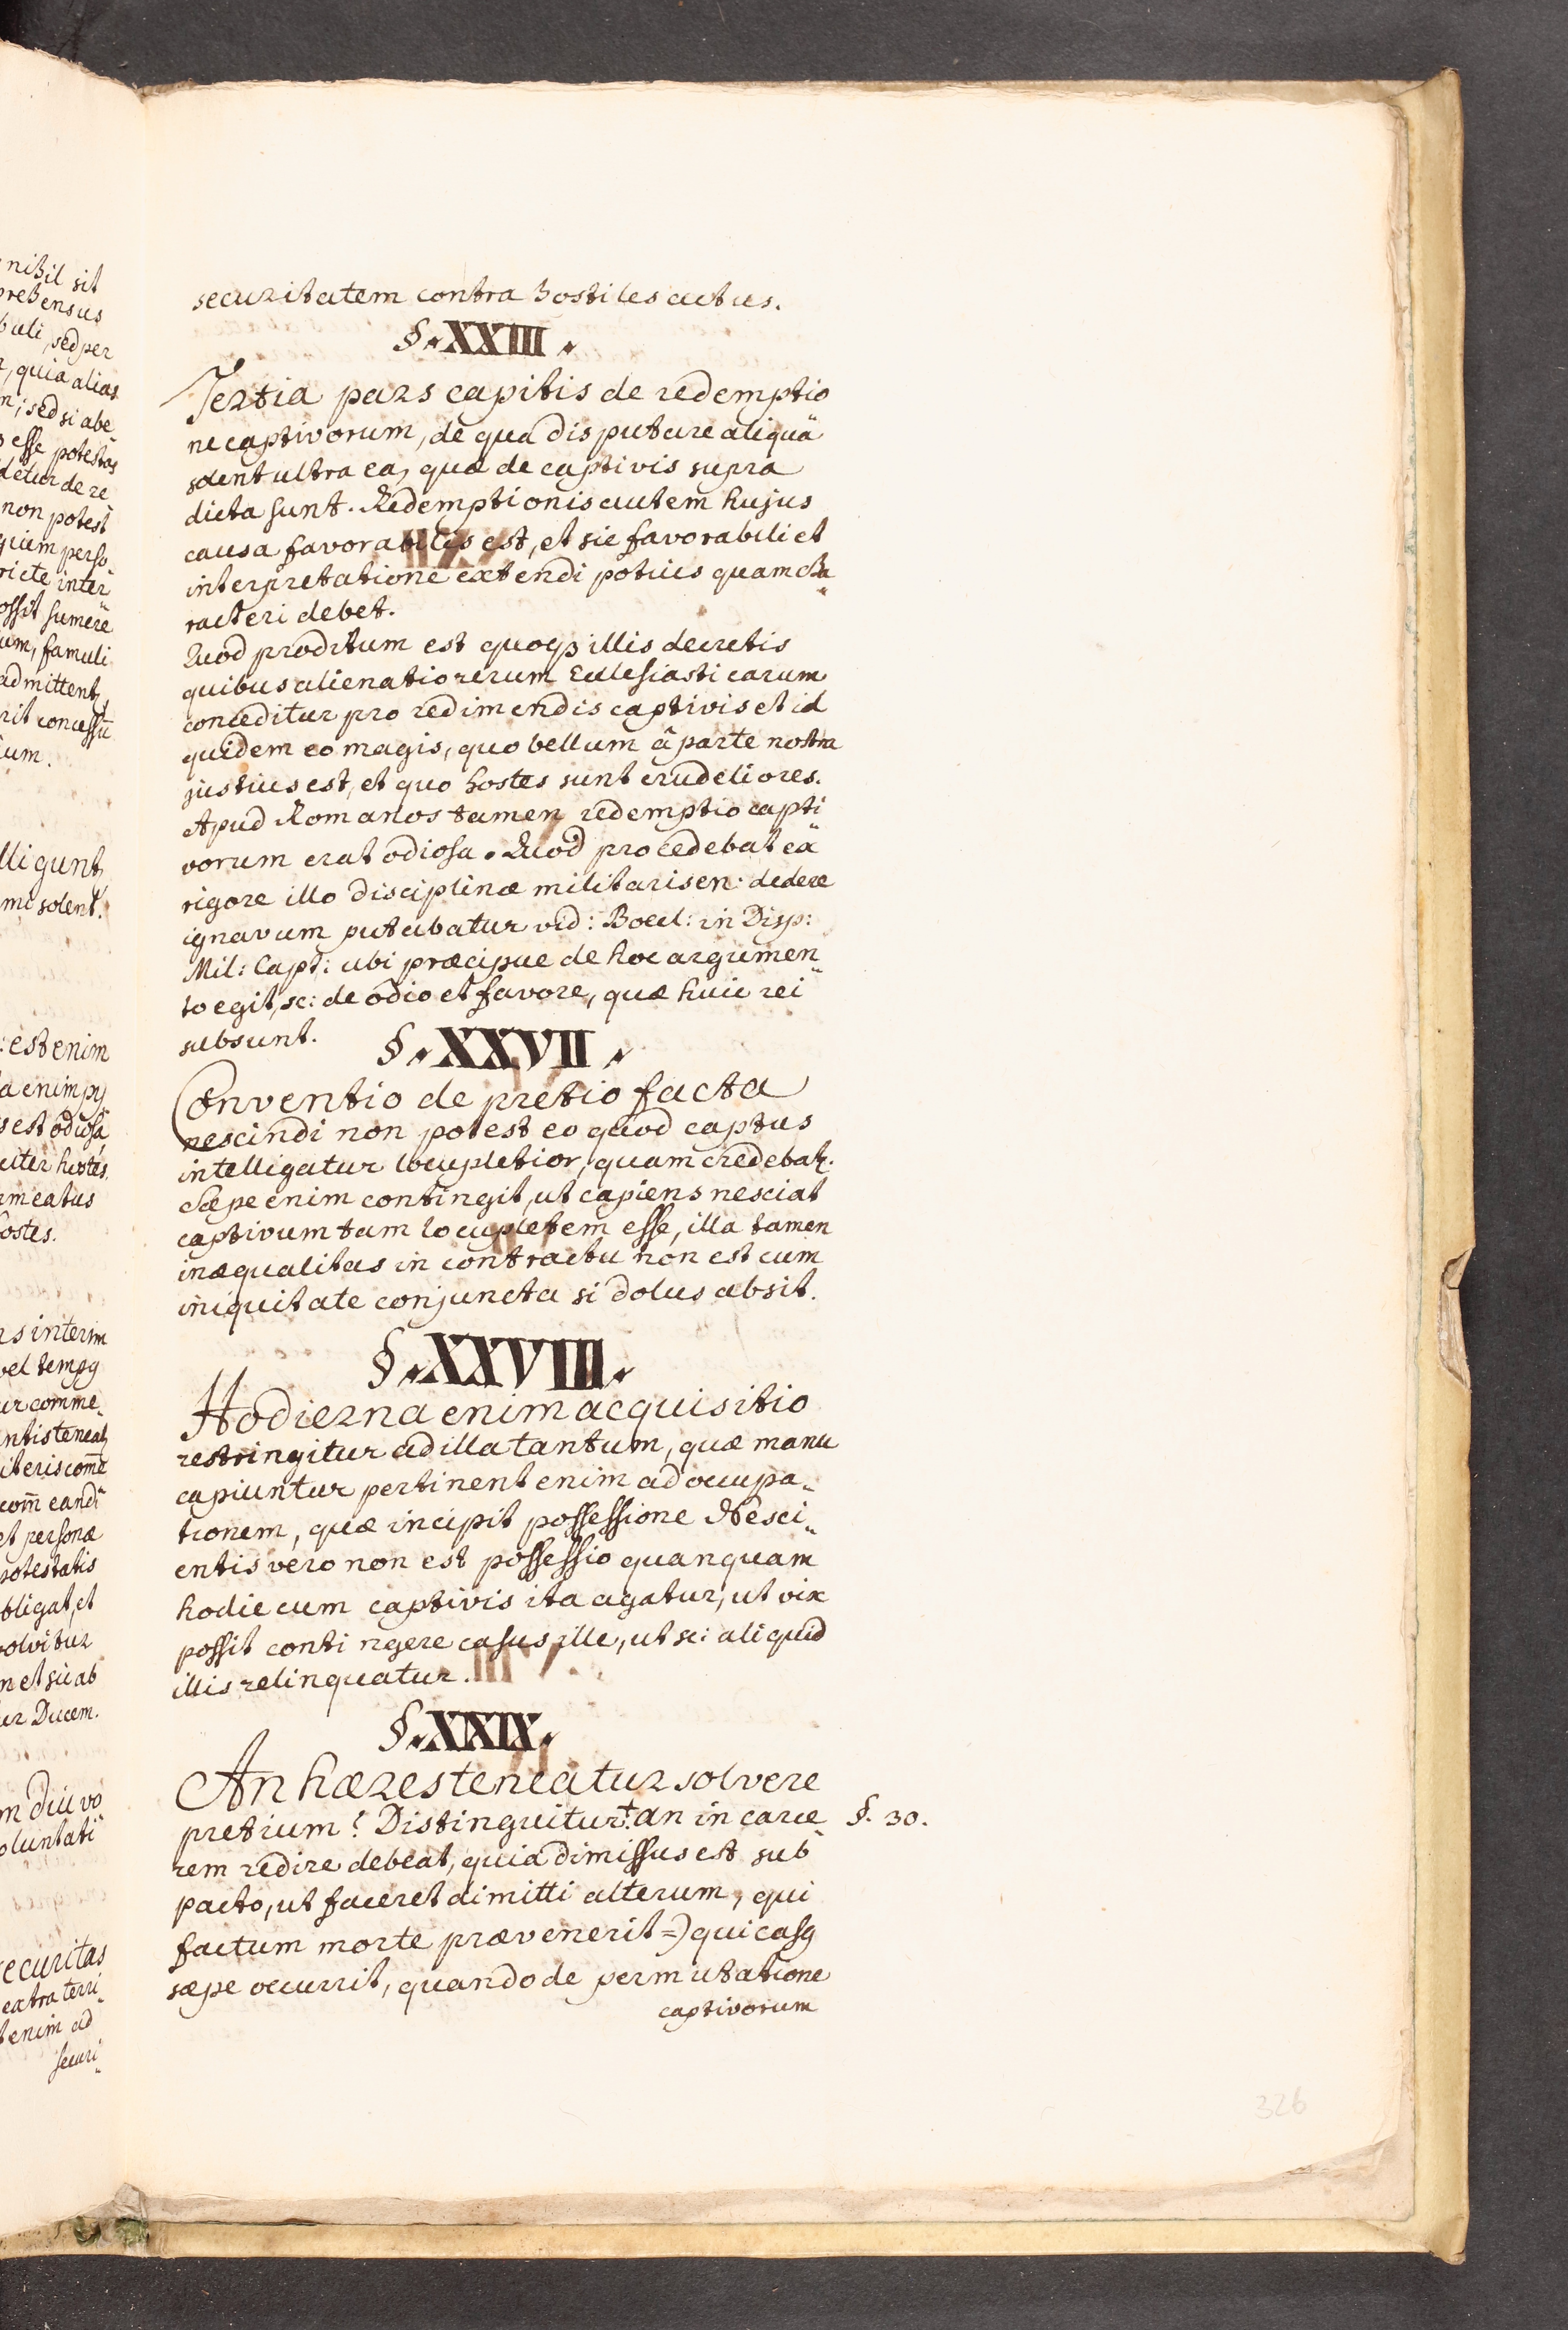 securitatem contra hostiles actus.
§ XXIII
Tertia pars capitis de redemptio
ne captivorum, de qua disputare aliquā
solent ultra ea, quæ de captivis supra
dicta sunt. Redemptionis autem hujus
causa favorabilis est, et sic favorabili et
interpretatione extendi potius quam cha„
racteri debet.
Quod proditum est quoqꝫ illis decretis
quibus alienatio rerum Ecclesiasticarum
conceditur pro redimendis captivis et id
quidem eo magis, quo bellum â parte nostra
justius est, et quo hostes sunt crudeliores.
Apud Romanos tamen redemptio capti„
vorum erat odiosa. Quod procedebat ex
rigore illo disciplinæ militaris en: dedere
ignavum putabatur vid: Boecl: in Disp:
Mil: Capt: ubi præcipue de hoc argumen„
to egit, sc: de odio et favore, quæ huic rei
subsunt.
§ XXVII
Conventio de pretio facta
rescindi non potest eo quod captus
intelligatur locupletior, quam credebatꝛ.
Sæpe enim contingit, ut capiens nesciat
captivum tam locupletem esse, illa tamen
inæqualitas in contractu non est cum
iniquitate conjuncta si dolus absit.
§ XXVIII.
Hodierna enim acquisitio
restringitur ad illa tantum, quæ manu
capiuntur pertinent enim ad occupa„
tionem, quæ incipit possessione Nesci„
entis vero non est possessio quanquam
hodie cum captivis ita agatur, ut vix
possit contingere casus ille, ut sc: aliquid
illis relinquatur.
§ XXIX
An hæres teneatur solvere
pretium? Distinguitur: † an in carce„ §. 30.
rem redire debeat, quia dimissus est sub
pacto, ut faceret dimitti alterum, qui
factum morte prævenerit =) qui casꝰ
sæpe occurrit, quando de permutatione
captivorum
326
nihil sit
prehensus
sed per
quia alias
sed si abe
esse potestas
detur de re
non potest
famuli
admittentꝛ
ligunt
mi solent.
est enim
a enim
est odiosa
hostes.
meatus
hostes.
interim
vel
comme„
et personæ
potestatis
obligat, et
solvitur
Ducem.
diu vo
oluntati
securitas
extra terri„
enim ad
securi„